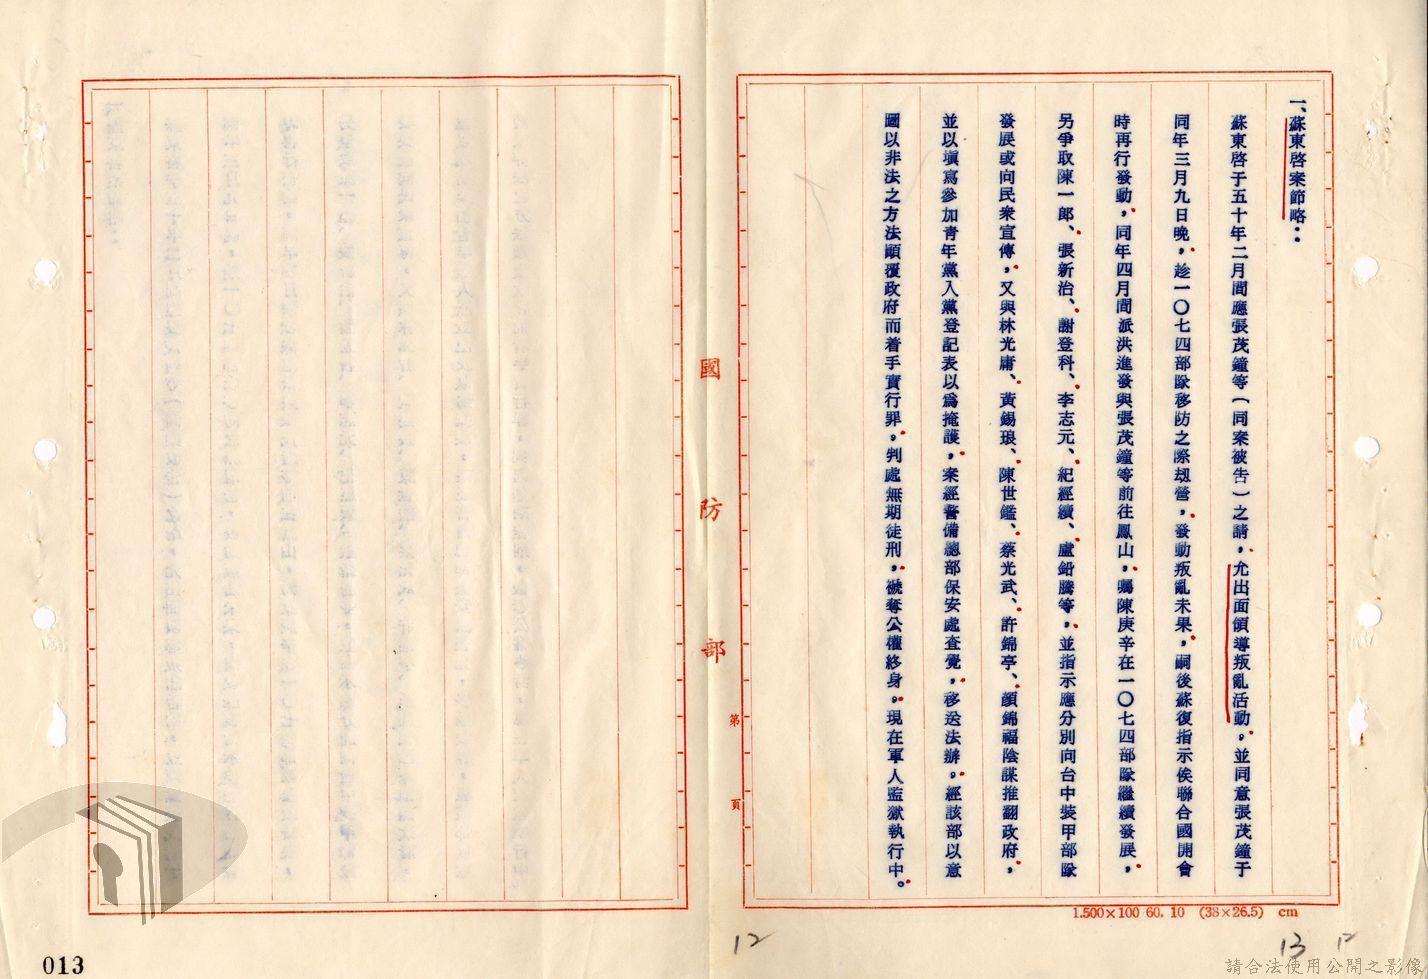 一、蘇東啓案節略：
蘇東啓于五十年二月間應張茂鐘等（同案被告）之請，允出面領導叛亂活動。並同意張茂鐘于
同年三月九日晚，趁一〇七四部隊移防之際刼營，發動叛亂未果，嗣後蘇復指示俟聯合國開會
時再行發動，同年四月間派洪進發與張茂鐘等前往鳳山，囑陳庚辛在一〇七四部隊繼續發展，
另爭取陳一郎、張新治、謝登科、李志元、紀經續、盧鉛騰等，並指示應分別向台中裝甲部隊
發展或向民衆宣傳，又與林光庸、黃錫琅、陳世鑑、蔡光武、許錦亭、顏錦福陰謀推翻政府，
並以塡寫參加青年黨入黨登記表以爲掩護，案經警備總部保安處査覺，移送法辦。經該部以意
圖以非法之方法顚覆政府而着手實行罪，判處無期徒刑，褫奪公權終身。現在軍人監獄執行中。
國防部
第 頁
1.500×100 60. 10 (38×26.5) cm
12
13 12
013
請合法使用公開之影像